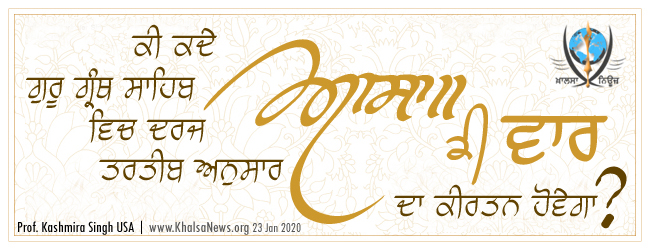 ਕੀ ਕਦੇ
ਗੁਰੂ ਗ੍ਰੰਥ ਸਾਹਿਬ
ਵਿਚ ਦਰਜ
ਤਰਤੀਬ ਅਨੁਸਾਰ
ਆਸਾ
ਕੀ ਵਾਰ
ਦਾ ਕੀਰਤਨ ਹੋਵੇਗਾ?
ਖ਼ਾਲਸਾ ਨਿਊਜ਼
Prof. Kashmira Singh USA | www.KhalsaNews.org 23 Jan 2020